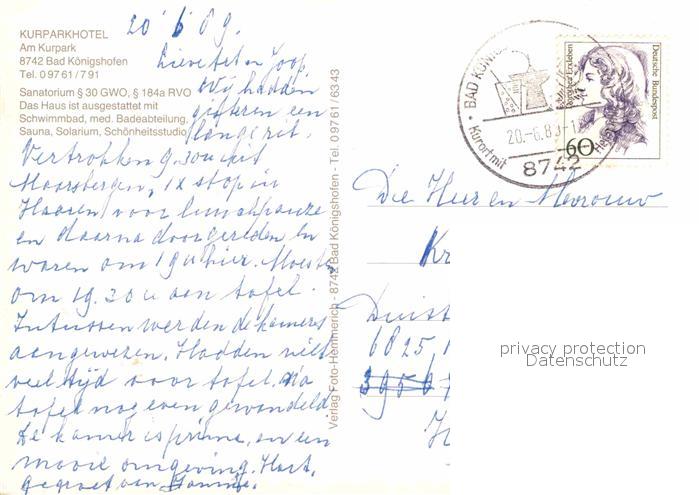 KURPARKHOTEL
Am Kurpark
8742 Bad Königshofen
Tel. 0 97 61 / 7 91
Sanatorium § 30 GWO, § 184a RVO
Das Haus ist ausgestattet mit
Schwimmbad, med. Badeabteilung,
Sauna, Solarium, Schönheitsstudio
20 6 89.
Lieve Joop
Wij hadden
gisteren een
lange rit.
Vertrokken 9.30 uit
Maarsbergen, 1x stop in
voor lunchpauze
en daarna doorgereden en
waren om 19 u hier. Moest
om 19.30 u aan tafel.
Intussen werden de kamers
aangewezen. Hadden niet
veel tijd voor tafel. Na
tafel nog even gewandeld
De kamer is prima, en een
mooie omgeving. Hart.
gegroet van
Verlag Foto-Hemmerich - 8742 Bad Königshofen - Tel. 0 97 61 / 63 43
BAD KÖNIG
20.-6.89-1
Kurort mit
8742
Dorothea Erxleben
Deutsche Bundespost
60
Die Heer en Mevrouw
Kr
Duist
6825
3950
privacy protection
Datenschutz